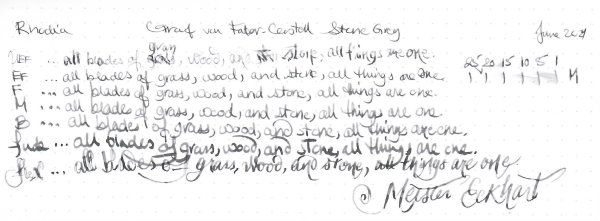 Rhodia Conraf van Faber-Castell Stone Grey June 2021
UEF ... all blades of grass, wood, and stone, all things are one. 25 20 15 10 5 1
EF ... all blades of grass, wood, and stone, all things are one. 1 1 1 1 1 1 M
F ... all blades of grass, wood, and stone, all things are one.
M ... all blades of grass, wood, and stone, all things are one.
B ... all blades of grass, wood, and stone, all things are one.
fude ... all blades of grass, wood, and stone, all things are one.
flex ... all blades of grass, wood, and stone, all things are one.
Meister Eckhart